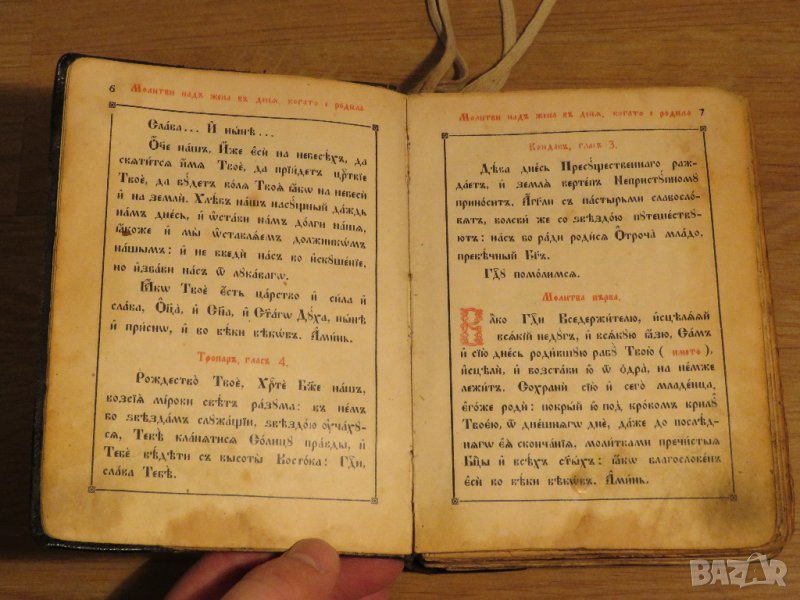 6 Молитви надъ жена въ деня, когато і родила
Сла́ва... И҆ ны́нѣ...
Ѻ҆́че на́шъ, И҆́же є҆сѝ на небесѣ́хъ, да
свѧти́тсѧ и҆́мѧ Твоѐ, да прїи́детъ ца́рствїе
Твоѐ, да бꙋ́детъ во́лѧ Твоѧ̀ ꙗ҆́кѡ на небесѝ
и҆ на землѝ. Хлѣ́бъ на́шъ насꙋ́щный да́ждь
на́мъ дне́сь, и҆ ѡ҆ста́ви на́мъ до́лги на́шѧ,
ꙗ҆́коже и҆ мы̀ ѡ҆ставлѧ́емъ должникѡ́мъ
на́шымъ: и҆ не введѝ на́съ во и҆скꙋше́нїе,
но и҆зба́ви на́съ ѿ лꙋка́вагѡ.
Ꙗ҆́кѡ Твоѐ є҆́сть ца́рство и҆ си́ла и҆
сла́ва, Ѻ҆ц҃а̀, и҆ Сн҃а, и҆ Ст҃а́гѡ Дх҃а, ны́нѣ
и҆ при́снѡ, и҆ во вѣ́ки вѣкѡ́въ. А҆ми́нь.
Тропарь, гласъ 4.
Рождество̀ Твоѐ, Хрⷭ҇тѐ Бж҃е на́шъ,
возсїѧ̀ мі́рови свѣ́тъ ра́зꙋма: въ не́мъ
бо ѕвѣзда́мъ слꙋжа́щїи, ѕвѣздо́ю ᲂу҆ча́хꙋ-
сѧ, Тебѣ̀ кла́нѧтисѧ Со́лнцꙋ пра́вды, и҆
Тебѐ вѣ́дѣти съ высоты̀ Восто́ка: Гдⷭ҇и,
сла́ва Тебѣ̀.
Молитви надъ жена въ деня, когато і родила 7
Кондакъ, гласъ 3.
Дѣ́ва дне́сь Пресꙋ́щественнаго раж-
да́етъ, и҆ землѧ̀ верте́пъ Непристꙋ́пномꙋ
прино́ситъ. А҆́гг҃ли съ па́стырьми славосло́-
вѧтъ, волсви́ же со ѕвѣздо́ю пꙋтеше́ствꙋ-
ютъ: на́съ бо ра́ди роди́сѧ Ѻ҆троча̀ мла́до,
преве́чный Бг҃ъ.
Гдⷭ҇ꙋ помо́лимсѧ.
Молитва първа.
Влⷣко Гдⷭ҇и Вседержи́телю, и҆сцѣлѧ́ѧй
всѧ́кїй недꙋ́гъ, и҆ всѧ́кꙋю ꙗ҆́зю, Са́мъ
и҆ сїю̀ дне́сь роди́вшꙋю рабꙋ̀ Твою̀ ( името ),
и҆сцѣлѝ, и҆ возста́ви ю҆̀ ѿ ѻ҆дра̀, на не́мже
лежи́тъ. Сохранѝ сїю̀ и҆ сего̀ младе́нца,
є҆го́же родѝ: покры́й ю҆̀ под кро́вомъ крилꙋ̀
Твоє́ю, ѿ дне́шнѧгѡ днѐ, да́же до послѣ́д-
нѧгѡ є҆ѧ̀ сконча́нїѧ, моли́тками пречи́стыѧ
Бцⷣы и҆ всѣ́хъ ст҃ы́хъ: ꙗ҆́кѡ благослове́нъ
є҆сѝ во вѣ́ки вѣкѡ́въ. А҆ми́нь.
BAZAR